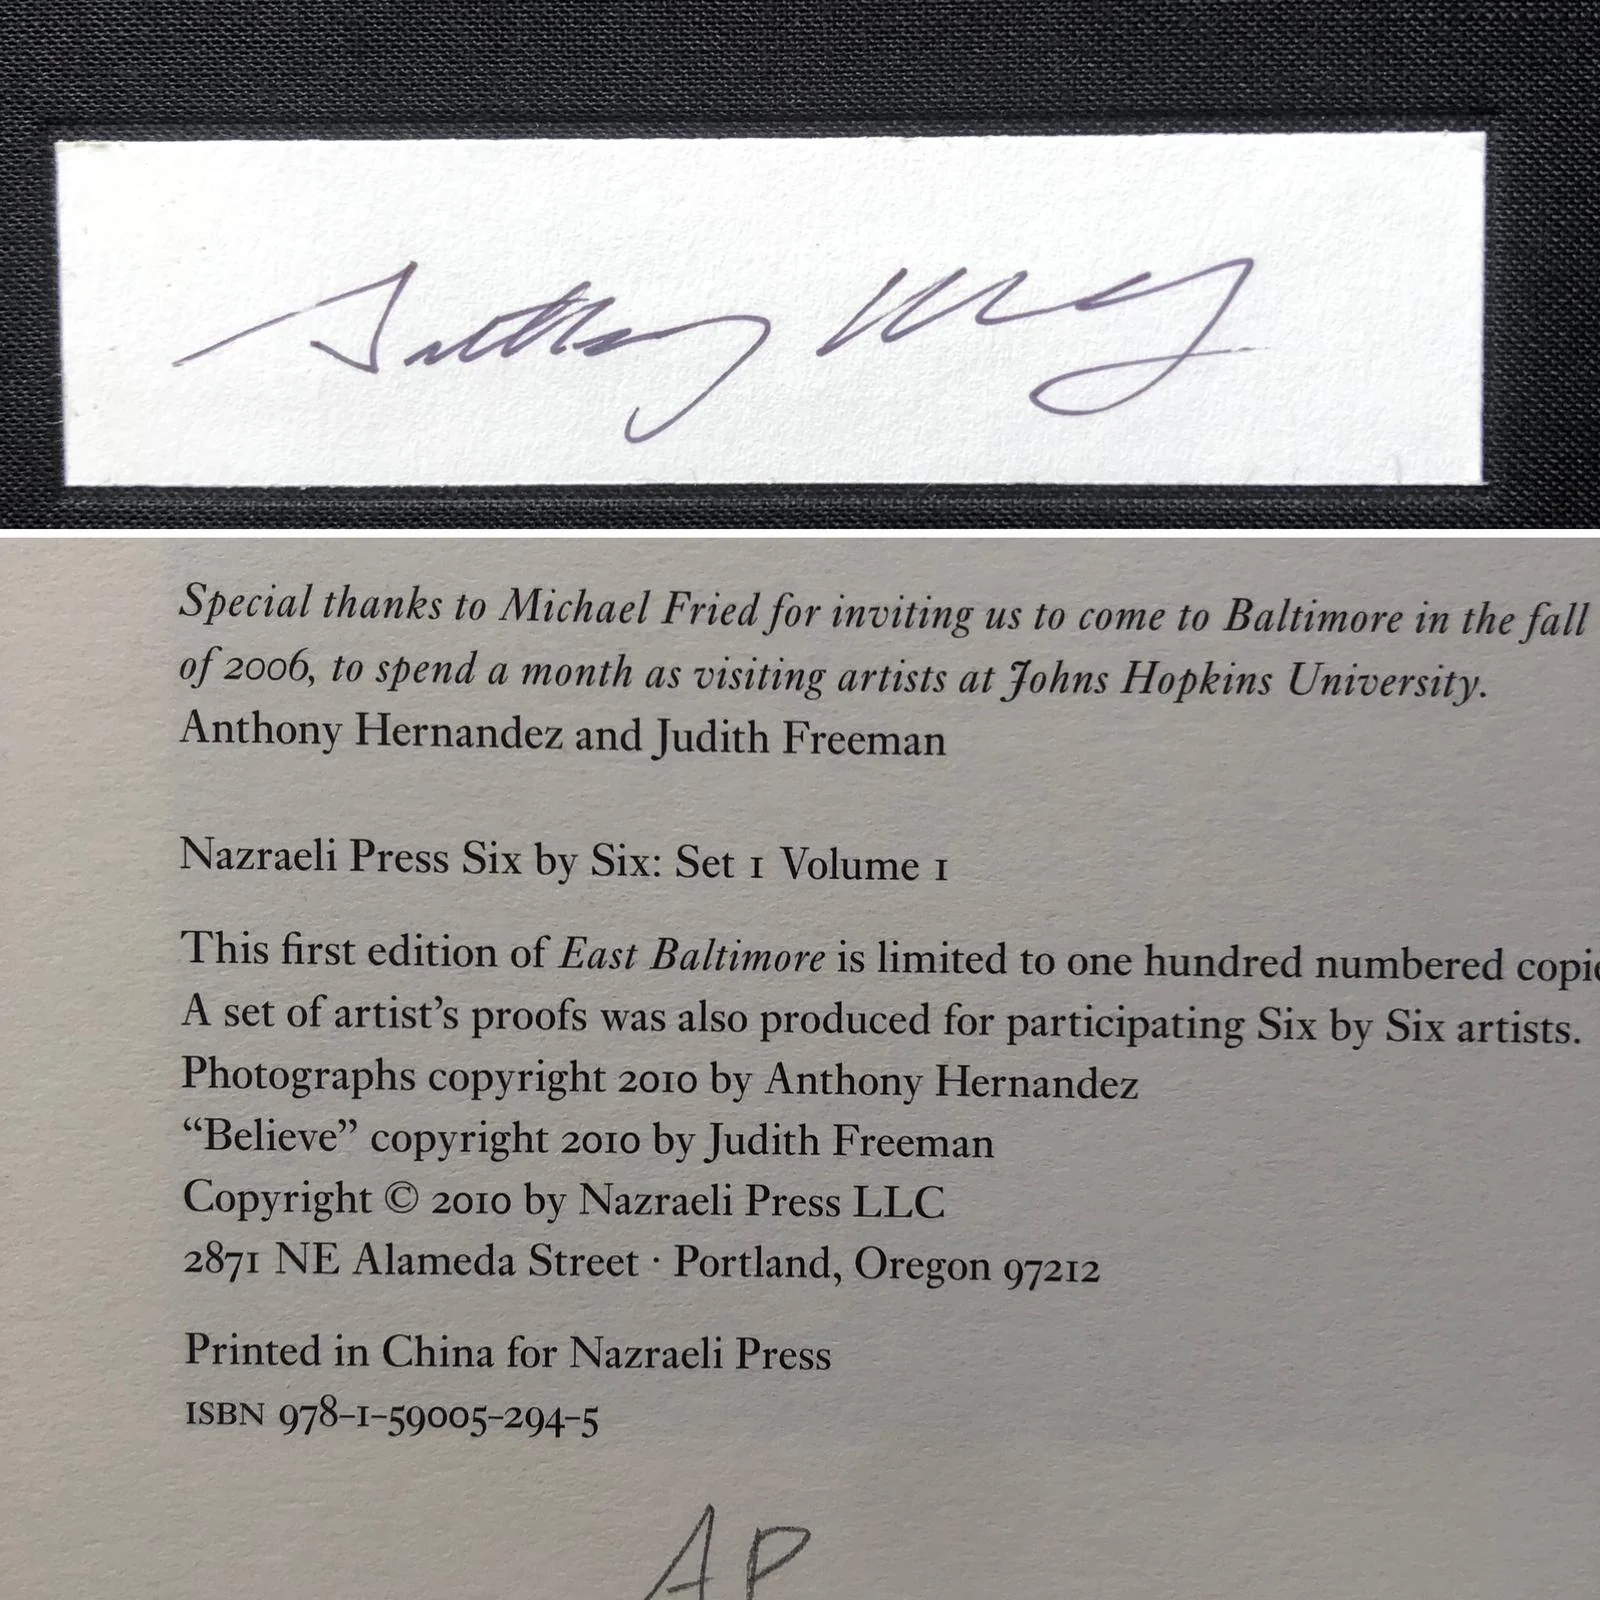 Anthony
Special thanks to Michael Fried for inviting us to come to Baltimore in the fall
of 2006, to spend a month as visiting artists at Johns Hopkins University.
Anthony Hernandez and Judith Freeman
Nazraeli Press Six by Six: Set 1 Volume 1
This first edition of East Baltimore is limited to one hundred numbered copie
A set of artist's proofs was also produced for participating Six by Six artists.
Photographs copyright 2010 by Anthony Hernandez
“Believe” copyright 2010 by Judith Freeman
Copyright © 2010 by Nazraeli Press LLC
2871 NE Alameda Street · Portland, Oregon 97212
Printed in China for Nazraeli Press
ISBN 978-1-59005-294-5
AP